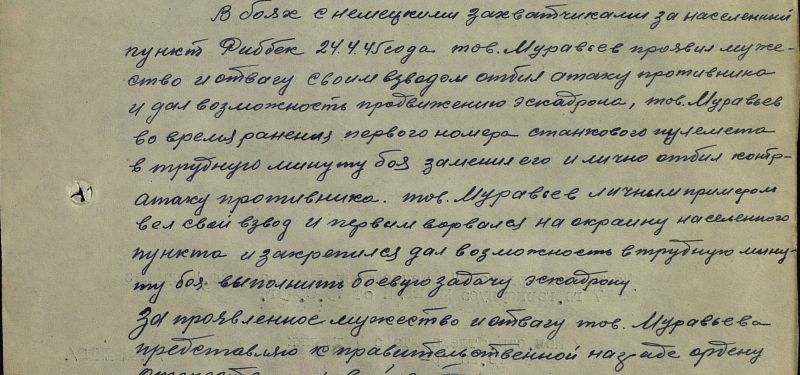 В боях с немецкими захватчиками за населенный
пункт Риббек 24.4.45 года тов. Муравьев проявил муже-
ство и отвагу своим взводом отбил атаку противника
и дал возможность продвижению эскадрона, тов. Муравьев
во время ранения первого номера станкового пулемета
в трудную минуту боя заменил его и лично отбил контр-
атаку противника. тов. Муравьев личным примером
вел свой взвод и первым ворвался на окраину населенного
пункта и закрепился дал возможность в трудную мину-
ту боя выполнить боевую задачу эскадрону.
За проявленное мужество и отвагу тов. Муравьева
представляю к правительственной награде ордену